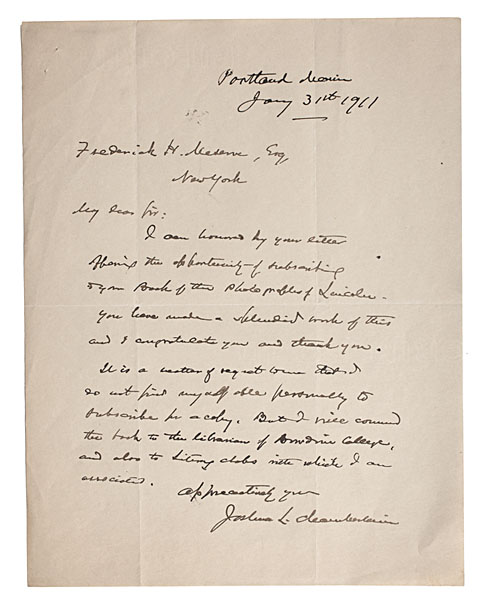 Portland Maine
Jany 31st 1911
Frederick H. Meserve, Esq,
New York
My dear Sir:
I am honored by your letter
offering the opportunity of subscribing
to your Book of the Photographs of Lincoln.
You have made a splendid work of this
and I congratulate you and thank you.
It is a matter of regret to me that I
do not find myself able personally to
subscribe for a copy. But I will commend
the book to the librarian of Bowdoin College,
and also to literary clubs with which I am
associated.
Appreciatively yours
Joshua L. Chamberlain